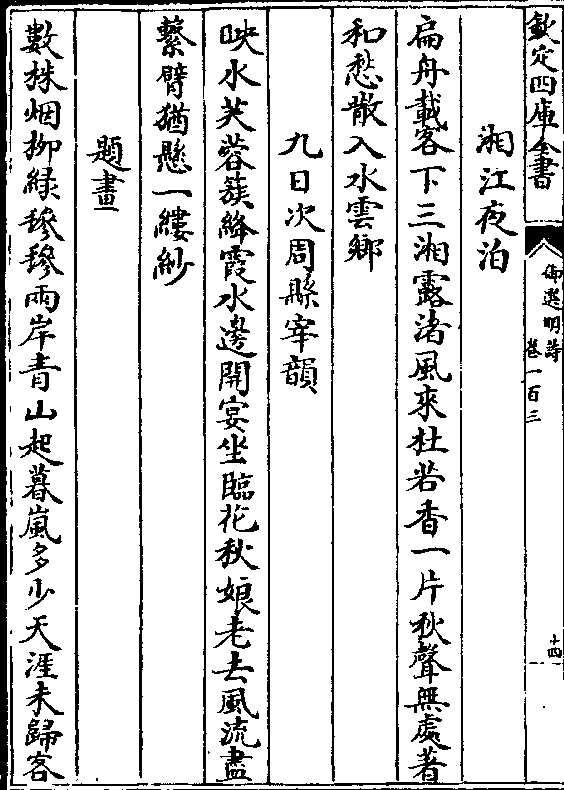 欽定四庫全書
御選明詩
卷一百三
十四
湘江夜泊
扁舟載客下三湘露渚風來杜若香一片秋聲無處著
和愁散入水雲鄉
九日次周縣宰韻
映水芙蓉簇絳霞水邊開宴坐臨花秋娘老去風流盡
繫臂猶懸一縷紗
題畫
數株烟柳綠毿毿兩岸青山起暮嵐多少天涯未歸客